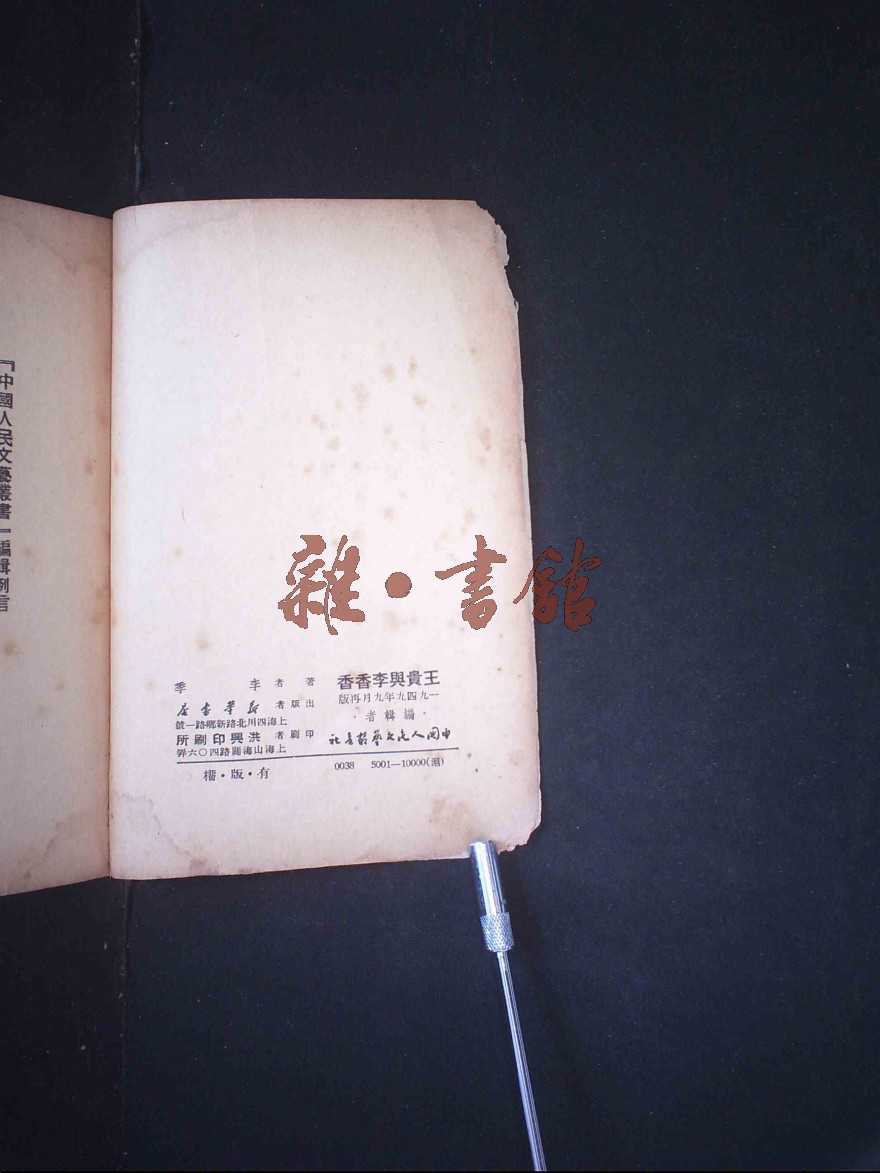 王貴與李香香
一九四九年九月再版
·編輯者·
中国人民文藝叢書社
著者 李季
出版者 新華書店
上海四川北路新鄉路一號
印刷者 洪興印刷所
上海山海關路四〇六弄
0038 5001—10000(滬)
有·版·權
『中國人民文藝叢書』編輯例言
雜·書館